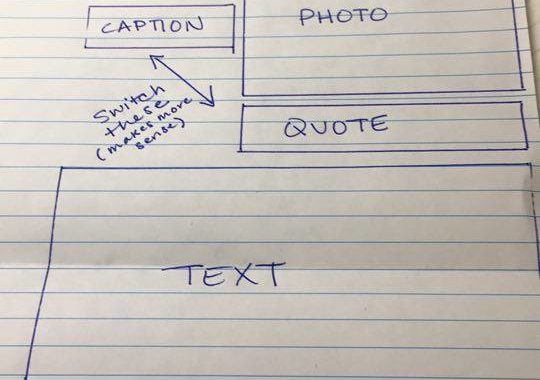 PHOTO
CAPTION
Switch
these
(makes more
sense)
QUOTE
TEXT